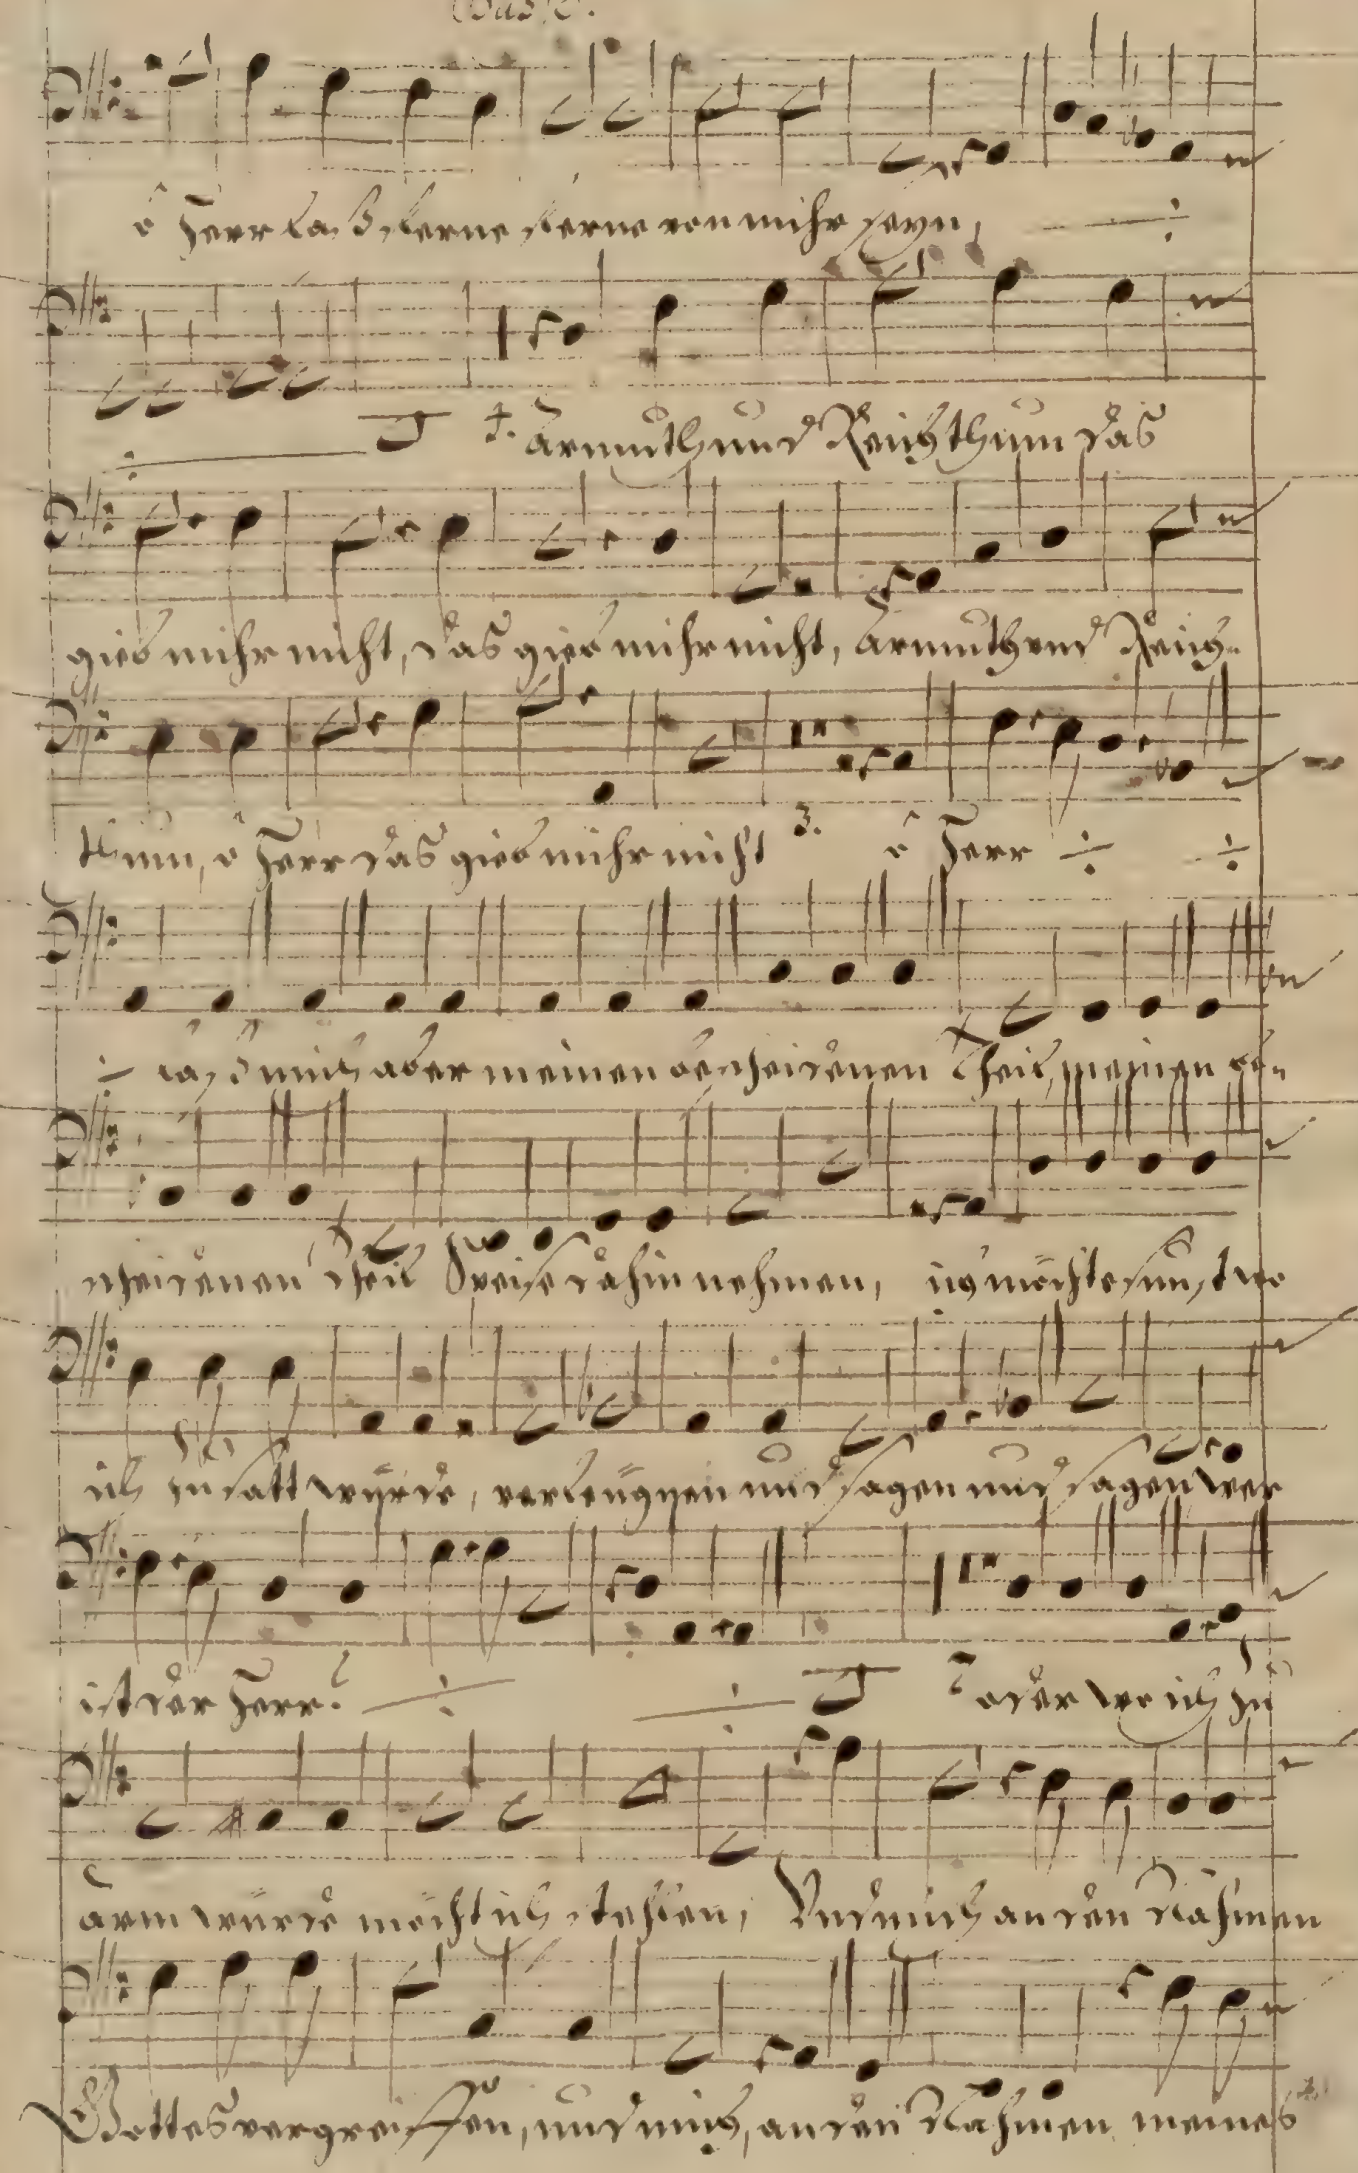 Basso.
ô Herr laß ferne ferne von mihr seyn, ÷
÷ 4. Armuth und Reichthum das
gieb mihr nicht, das gieb mihr nicht, Armuth und Reich-
thum, ô Herr das gieb mihr nicht 3. ô Herr ÷ ÷
÷ laß mich aber meinen bescheidenen Theil, meinen be-
scheidenen Theil Speise dahin nehmen, ich möchte sunst wo
ich zu satt würde, verleugnen und sagen und sagen wer
ist der Herr? ÷ ÷ 2 oder wo ich zu
arm würde möcht ich stehlen, Und mich an den Nahmen
Gottes vergreiffen, und mich, an den Nahmen meines